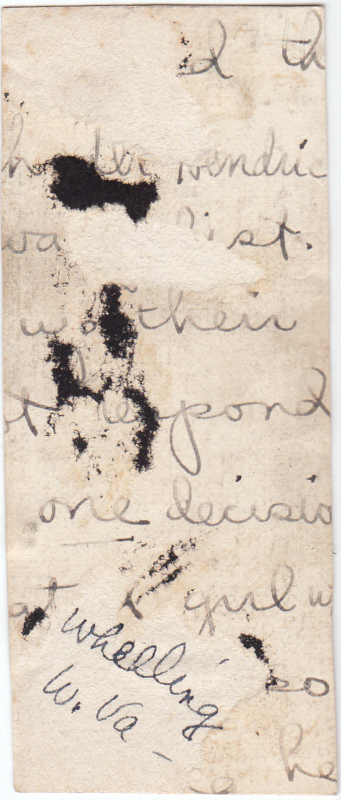 d th
h der Hendric
wa list.
was their
t respond
one decisio
at a girl w
Wheeling
W. Va -
so
he